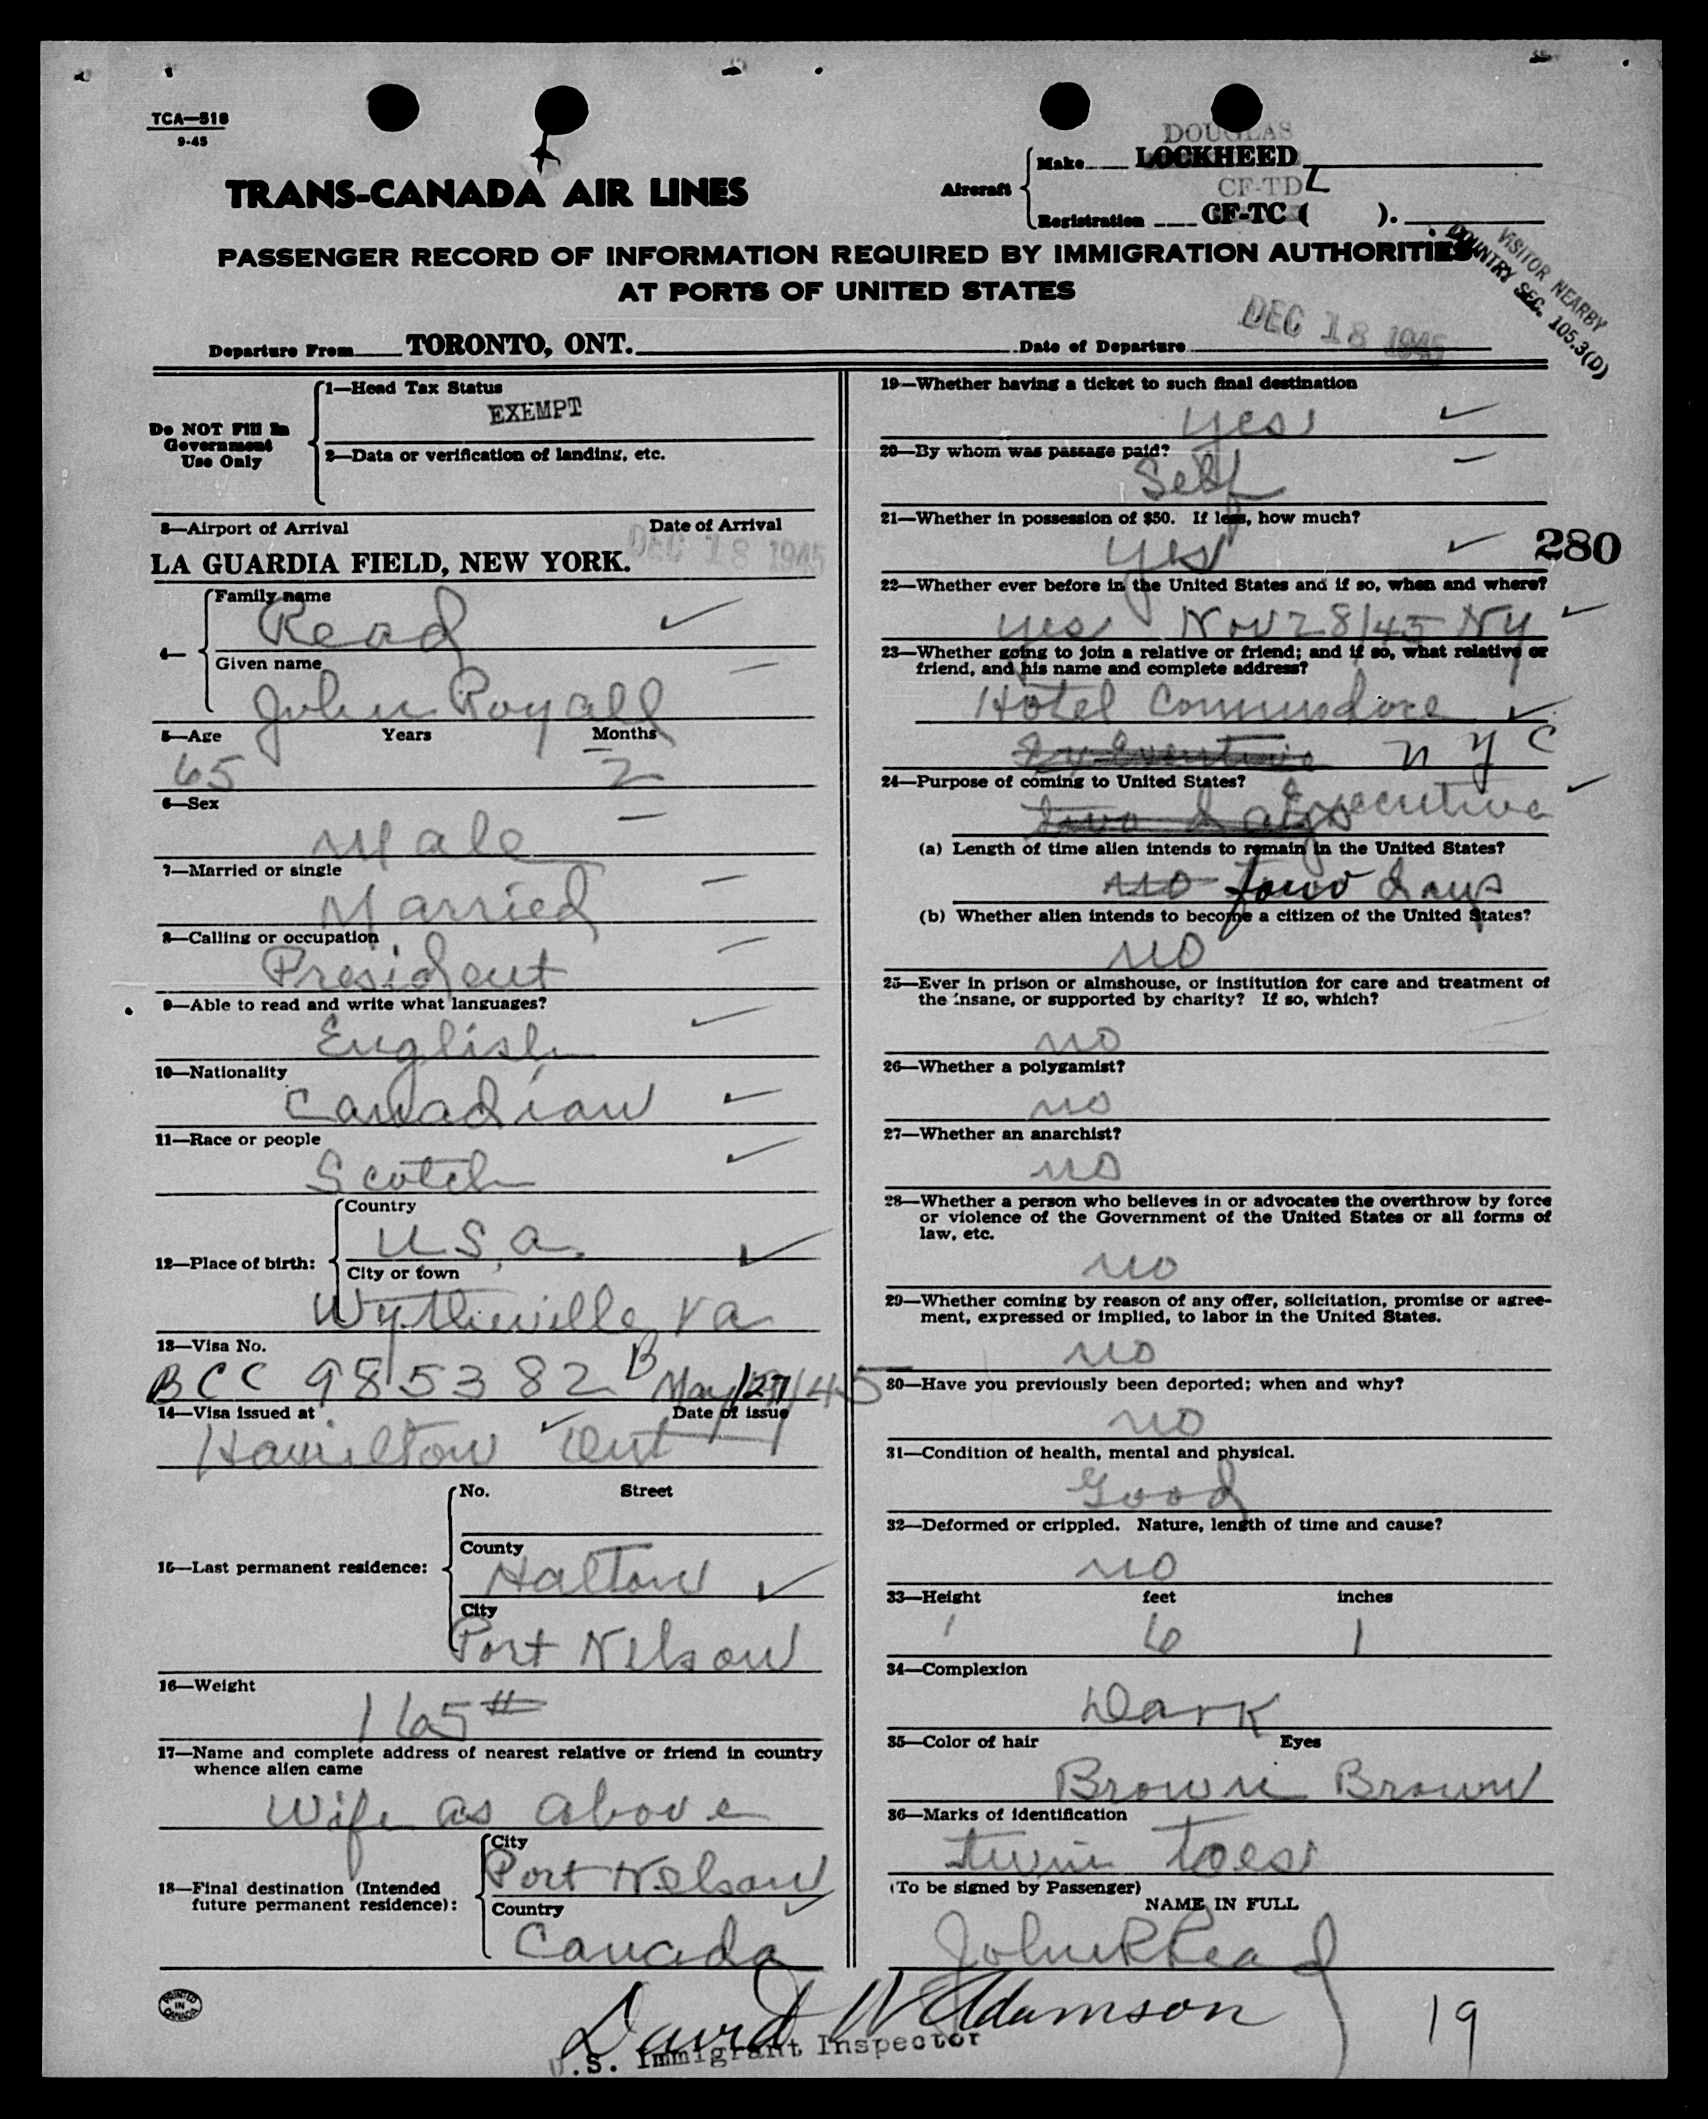 TCA—518
9-45
TRANS-CANADA AIR LINES
Aircraft
DOUGLAS
Make LOCKHEED
CF-TDL
Registration CF-TC ( ).
PASSENGER RECORD OF INFORMATION REQUIRED BY IMMIGRATION AUTHORITIES
AT PORTS OF UNITED STATES
VISITOR NEARBY
COUNTRY SEC. 105.3(D)
Departure From TORONTO, ONT. Date of Departure DEC 18 1945
Do NOT Fill In
Government
Use Only
1—Head Tax Status
EXEMPT
2—Data or verification of landing, etc.
3—Airport of Arrival Date of Arrival
LA GUARDIA FIELD, NEW YORK. DEC 18 1945
4—
Family name
Read
Given name
John Royall
5—Age Years Months
65 2
6—Sex
Male
7—Married or single
Married
8—Calling or occupation
President
9—Able to read and write what languages?
English
10—Nationality
Canadian
11—Race or people
Scotch
12—Place of birth:
Country
U.S.A.
City or town
Wytheville Va
13—Visa No.
BCC 985382 B May/27/45
14—Visa issued at Date of issue
Hamilton Ont
15—Last permanent residence:
No. Street
County
Halton
City
Port Nelson
16—Weight
165#
17—Name and complete address of nearest relative or friend in country
whence alien came
Wife as above
18—Final destination (Intended
future permanent residence):
City
Port Nelson
Country
Canada
PRINTED
IN
CANADA
19—Whether having a ticket to such final destination
yes
20—By whom was passage paid?
Self
21—Whether in possession of $50. If less, how much?
yes
280
22—Whether ever before in the United States and if so, when and where?
yes Nov 28/45 NY
23—Whether going to join a relative or friend; and if so, what relative or
friend, and his name and complete address?
Hotel Commodore
N Y C
24—Purpose of coming to United States?
Two Days Executive
(a) Length of time alien intends to remain in the United States?
no two days
(b) Whether alien intends to become a citizen of the United States?
no
25—Ever in prison or almshouse, or institution for care and treatment of
the insane, or supported by charity? If so, which?
no
26—Whether a polygamist?
no
27—Whether an anarchist?
no
28—Whether a person who believes in or advocates the overthrow by force
or violence of the Government of the United States or all forms of
law, etc.
no
29—Whether coming by reason of any offer, solicitation, promise or agree-
ment, expressed or implied, to labor in the United States.
no
30—Have you previously been deported; when and why?
no
31—Condition of health, mental and physical.
Good
32—Deformed or crippled. Nature, length of time and cause?
no
33—Height feet inches
6 1
34—Complexion
Dark
35—Color of hair Eyes
Brown Brown
36—Marks of identification
twin toes
(To be signed by Passenger)
NAME IN FULL
John R Read
David W Adamson
U.S. Immigrant Inspector
19